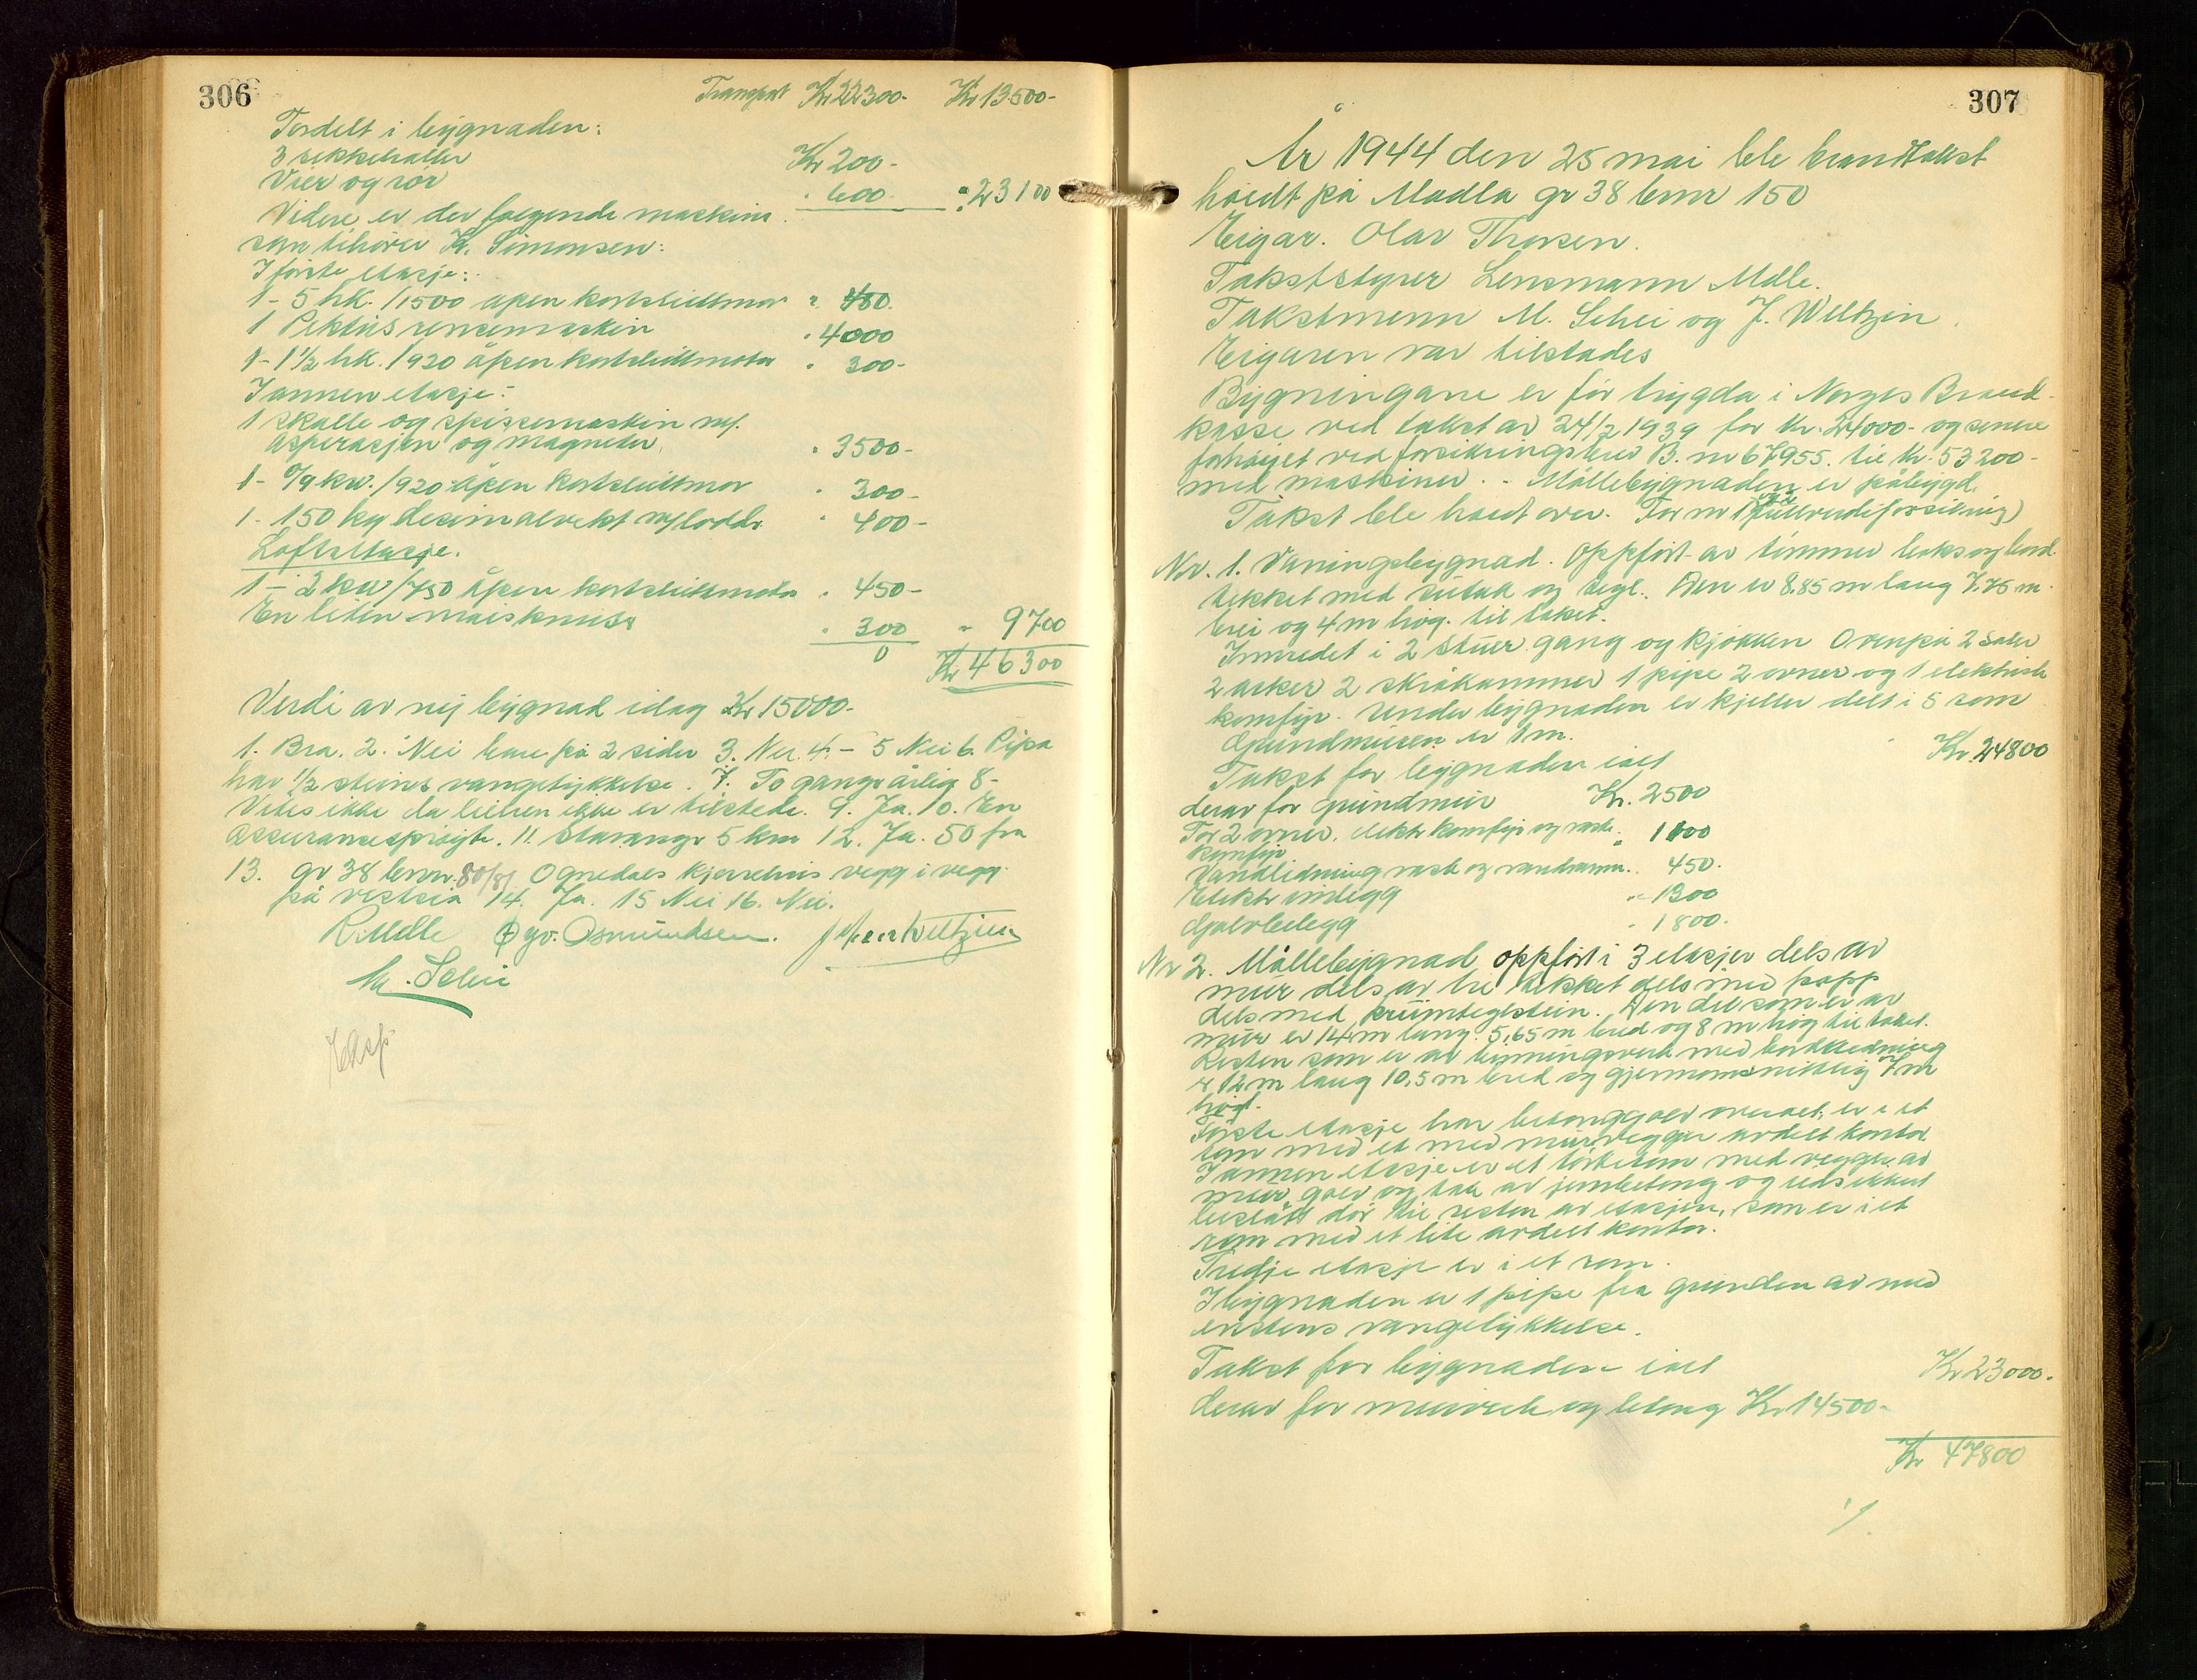 306
Transport Kr 22300.- Kr 13500-
Fordelt i bygnaden:
3 sekkehaller Kr 200-
Vier og rør " 600. " 23100
Videre er der følgende maskiner
som tilhører K. Simonsen:
I første etasje:
1 - 5 hK. /1500 åpen kortsluttmor " 450.
1 Pektus rensemaskin " 4000
1 - 1 1/2 hk. /920 åpen kortsluttmotor " 300-
I annen etasje:
1 skalle og spissemaskin m/.
asperasjon og magneter. " 3500-
1 - kw. /920 åpen kortsluttmor " 300-
1 - 150 kg desimalvekt m/lodd. " 400-
Loftsetasje.
1 - 2 kw/750 åpen kortsluttmotor " 450-
En liten maisknuser " 300 " 9700
0 Kr 46300
Verdi av nybygnad idag Kr 15000-
1. Bra. 2. Nei bare på 2 sider 3. Nei. 4. - 5 Nei 6. Pipa
har 1/2 steins vangetykkelse. 7. To gange årlig 8-
Vites ikke da leieren ikke er tilstede. 9. Ja. 10. En
Assuransesprøyte. 11. Stavanger 5 km 12. Ja. 50 fra
13. gr 38 bnr. 80/81 Ognedals kjerrehus vegg i vegg
på vestsia 14. Ja. 15 Nei 16. Nei.
R Mdle Øyv. Osmundsen. Weltzien
M. Schei
Eksp
307
År 1944 den 25 mai ble brandtakst
holdt på Madla gr 38 bnr 150
Eigar. Olav Thorsen.
Takststyrer Lensmann Mdle.
Takstmenn M. Schei og J. Weltzin.
Eigaren var tilstades
Bygningane er før trygda i Norges Brand-
kasse ved takst av 24/2 1939 for kr. 24000- og senere
forhøyet ved forsikringsbrev B. nr 67955. til kr. 53200-
med maskiner. - Møllebygnaden er påbygd.
Takst ble holdt over. For nr 1 fullverdiforsikring)
Nr. 1. Våningsbygnad. Oppført av tømmer boks og bord
tekket med sutak og tegl. Den er 8,85 m lang 7.75 m.
brei og 4 m høg. til taket.
Innredet i 2 stuer gang og kjøkken Ovenpå 2 saler
2 arker 2 skråkammer 1 pipe 2 ovner og 1 elektrisk
komfyr. Under bygnaden er kjeller delt i 5 rom
Grundmuren er 1 m.
Takst for bygnaden ialt Kr. 24800
derav for grundmur Kr. 2500
For 2 ovner. elektr komfyr og vask. " 1000
komfyr
Vandledning vask og vandkamm. " 450.
Elektr innlegg " 1300
Golvbelegg " 1800.
Nr 2. Møllebygnad oppført i 3 etasjer dels av
mur dels av tre tekket dels med papp
dels med krumteglstein. Den del som er av
mur er 14 m lang. 5,65 m bred og 8 m høg til taket.
Resten som er av binningsverk med bordkledning
er 12 m lang 10,5 m bred og gjennomsnittlig 7 m
høgt.
Første etasje har betonggolv overalt, er i et
rom med et med murvegger avdelt kontor
I annen etasje er et tørkerom med vegger av
mur, golv og tak av jernbetong og ildsikkert
beslått dør til resten av etasjen, som er i et
rom med et lite avdelt kontor.
Tredje etasje er i et rom.
I bygnaden er 1 pipe fra grunden av med
enstens vangetykkelse.
Takst for bygnaden ialt Kr 23000.
derav for murverk og betong Kr 14500-
Kr 47800